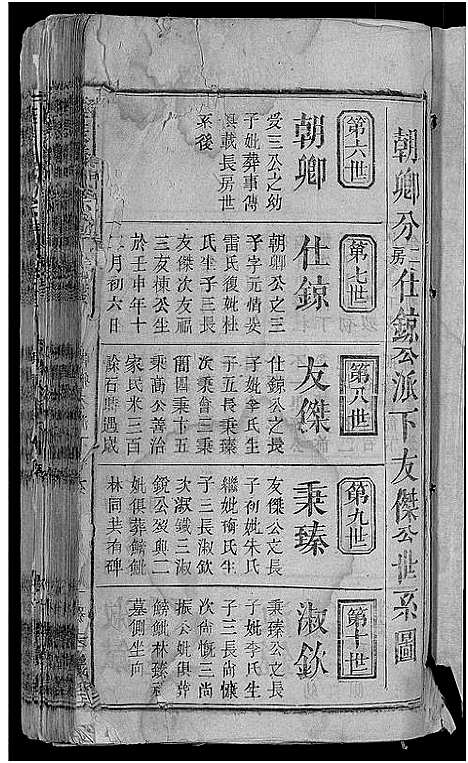 朝卿分二房仕鍄公派下友傑公世系圖
第六世
朝卿
受三公之幼
子妣葬事傳
俱載長房世
系後
第七世
仕鍄
朝卿公之三
子字元情娶
雷氏復妣杜
氏生子三長
友傑次友福
三友棟公生
於壬申年十
二月初六日
第八世
友傑
仕鍄公之長
子妣李氏生
子五長秉臻
次秉會三秉
簡四秉卞五
秉高公善治
家民米三百
餘石時遇歲
第九世
秉臻
友傑公文長
子初妣朱氏
繼妣喻氏生
子三長淑欽
次淑鐵三淑
鏡公娶與二
妣俱葬
林同共有碑
第十世
淑欽
秉臻公文長
子妣李氏生
子三長尚慷
次尚慨三尚
振公妣俱葬
林臻
墓側坐向